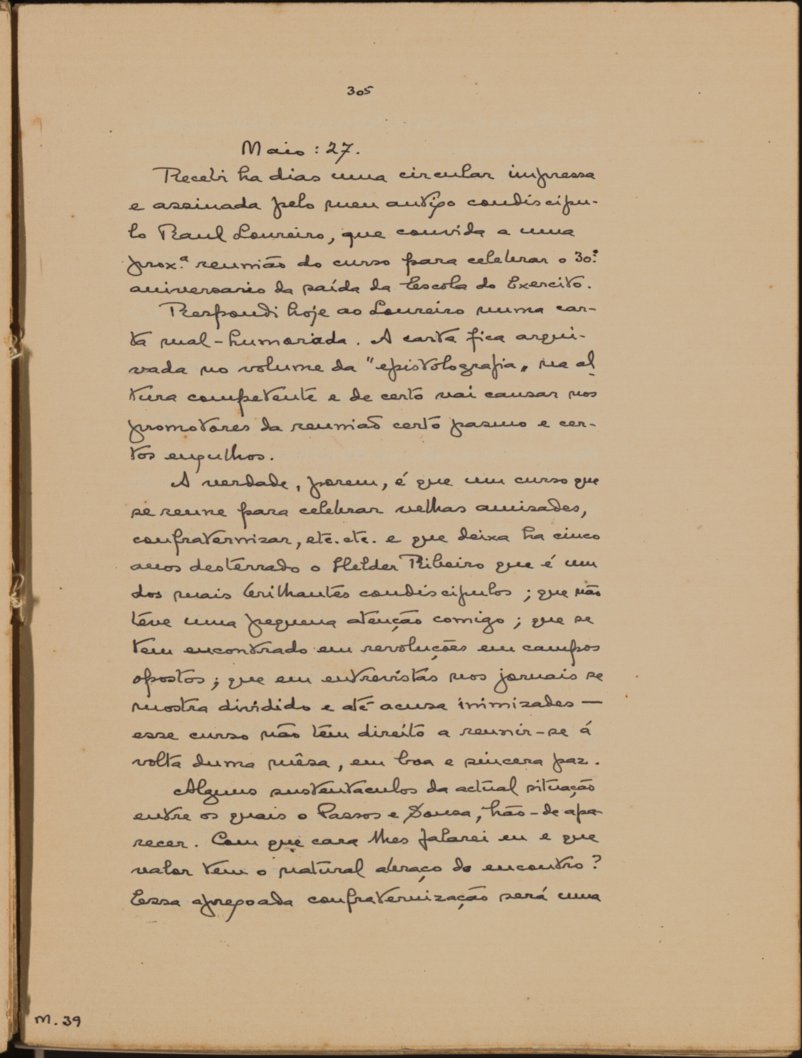 305
Maio : 27.
Recebi ha dias uma circular impressa
e assinada pelo meu antigo condiscipu-
lo Raul Loureiro, que convida a uma
prox.ª reunião do curso para celebrar o 30.º
aniversario da saída da Escola do Exercito.
Respondi hoje ao Loureiro numa car-
ta mal-humorada. A carta fica arqui-
vada no volume da "epistolografia" na al
tura competente e de certo vai causar nos
promotores da reunião certo pasmo e cer-
tos engulhos.
A verdade, porem, é que um curso que
se reune para celebrar velhas amisades,
confraternizar, etc. etc. e que deixa ha cinco
anos desterrado o Helder Ribeiro que é um
dos mais brilhantes condiscipulos ; que não
teve uma pequena atenção comigo ; que se
tem encontrado em revoluções em campos
opostos ; que em entrevistas nos jornais se
mostra dividido e até acusa inimizades —
esse curso não têm direito a reunir-se á
volta duma mêsa, em boa e sincera paz.
Alguns sustentaculos da actual situação
entre os quais o Passos e Sousa, hão-de apa-
recer. Com que cara lhes falarei eu e que
valor tem o natural abraço do encontro?
Essa apregoada confraternização será uma
M. 39